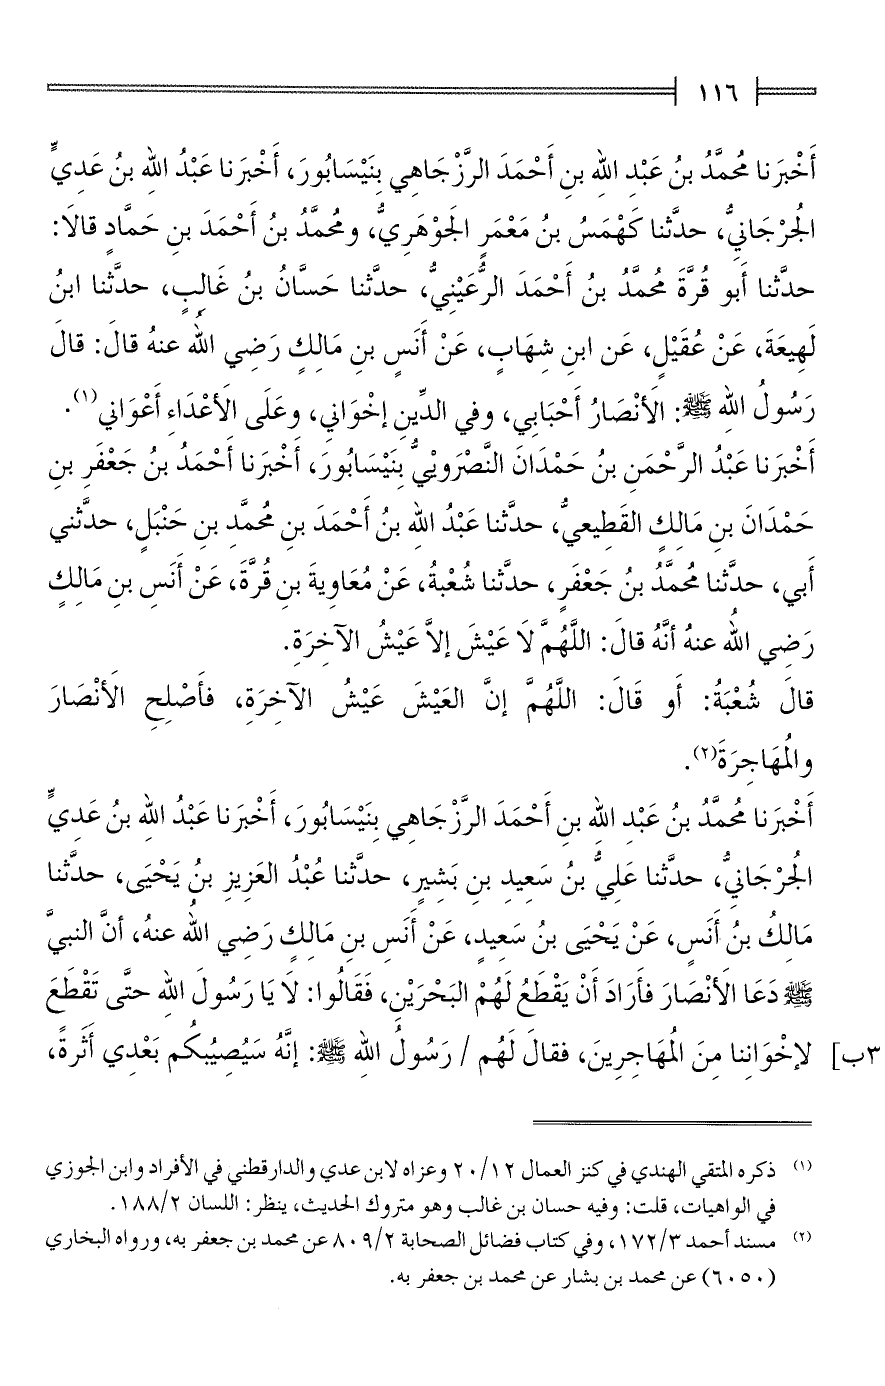 ١١٦
أَخْبَرَنا مُحمَّدُ بنُ عَبْدِ اللهِ بنِ أَحْمَدَ الرَّزْجَاهِي بِنَيْسَابُورَ، أَخْبَرَنا عَبْدُ اللهِ بنُ عَدِيٍّ
الجُرْجَانِيُّ، حدَّثنا كَهْمَسُ بنُ مَعْمَرٍ الجَوْهَرِيُّ، ومُحمَّدُ بنُ أَحْمَدَ بنِ حَمَّادٍ قالَا:
حدَّثنا أبو قُرَّةَ مُحمَّدُ بنُ أَحْمَدَ الرُّعَيْنِيُّ، حدَّثنا حَسَّانُ بنُ غَالِبٍ، حدَّثنا ابنُ
لَهِيعَةَ، عَنْ عُقَيْلٍ، عَن ابنِ شِهَابٍ، عَنْ أَنَسِ بنِ مَالِكٍ رَضِي اللهُ عنهُ قالَ: قالَ
رَسُولُ اللهِ ﷺ: الأَنْصَارُ أَحْبَابِي، وفي الدِّينِ إخْوَانِي، وعَلَى الأَعْدَاءِ أَعْوَانِي(١).
أَخْبَرَنا عَبْدُ الرَّحْمَنِ بنُ حَمْدَانَ النَّصْرَوِيْيُّ بِنَيْسَابُورَ، أَخْبَرَنا أَحْمَدُ بنُ جَعْفَرِ بنِ
حَمْدَانَ بنِ مَالِكٍ القَطِيعيُّ، حدَّثنا عَبْدُ اللهِ بنُ أَحْمَدَ بنِ مُحمَّدِ بنِ حَنْبَلٍ، حدَّثني
أَبي، حدَّثنا مُحمَّدُ بنُ جَعْفَرٍ، حدَّثنا شُعْبةُ، عَنْ مُعَاوِيةَ بنِ قُرَّةَ، عَنْ أَنَسِ بنِ مَالِكٍ
رَضِي اللهُ عنهُ أنَّهُ قالَ: اللَّهُمَّ لَا عَيْشَ إلاَّ عَيْشُ الآخِرَةِ.
قالَ شُعْبَةُ: أَو قَالَ: اللَّهُمَّ إنَّ العَيْشَ عَيْشُ الآخِرَةِ، فَأَصْلِحِ الأَنْصَارَ
والمُهَاجِرَةَ(٢).
أَخْبَرَنا مُحمَّدُ بنُ عَبْدِ اللهِ بنِ أَحْمَدَ الرَّزْجَاهِي بِنَيْسَابُورَ، أَخْبَرَنا عَبْدُ اللهِ بنُ عَدِيٍّ
الجُرْجَانِيُّ، حدَّثنا عَلِيُّ بنُ سَعِيدِ بنِ بَشِيرٍ، حدَّثنا عَبْدُ العَزِيزِ بنُ يَحْيَى، حدَّثنا
مَالِكُ بنُ أَنَسٍ، عَنْ يَحْيَى بنُ سَعِيدٍ، عَنْ أَنَسِ بنِ مَالِكٍ رَضِي اللهُ عنهُ، أنَّ النبيَّ
ﷺ دَعَا الأَنْصَارَ فأَرَادَ أَنْ يَقْطَعُ لَهُمْ البَحْرَيْنِ، فَقَالُوا: لَا يَا رَسُولَ اللهِ حتَّى تَقْطَعَ
لإخْوَانِنا مِنَ المُهَاجِرِينَ، فقالَ لَهُم / رَسُولُ اللهِ ﷺ: إنَّهُ سَيُصِيبُكُم بَعْدِي أَثَرةً، ٣ب]
(١) ذكره المتقي الهندي في كنز العمال ٢٠/١٢ وعزاه لابن عدي والدارقطني في الأفراد وابن الجوزي
في الواهيات، قلت: وفيه حسان بن غالب وهو متروك الحديث، ينظر: اللسان ١٨٨/٢.
(٢) مسند أحمد ١٧٢/٣، وفي كتاب فضائل الصحابة ٨٠٩/٢ عن محمد بن جعفر به، ورواه البخاري
(٦٠٥٠) عن محمد بن بشار عن محمد بن جعفر به.